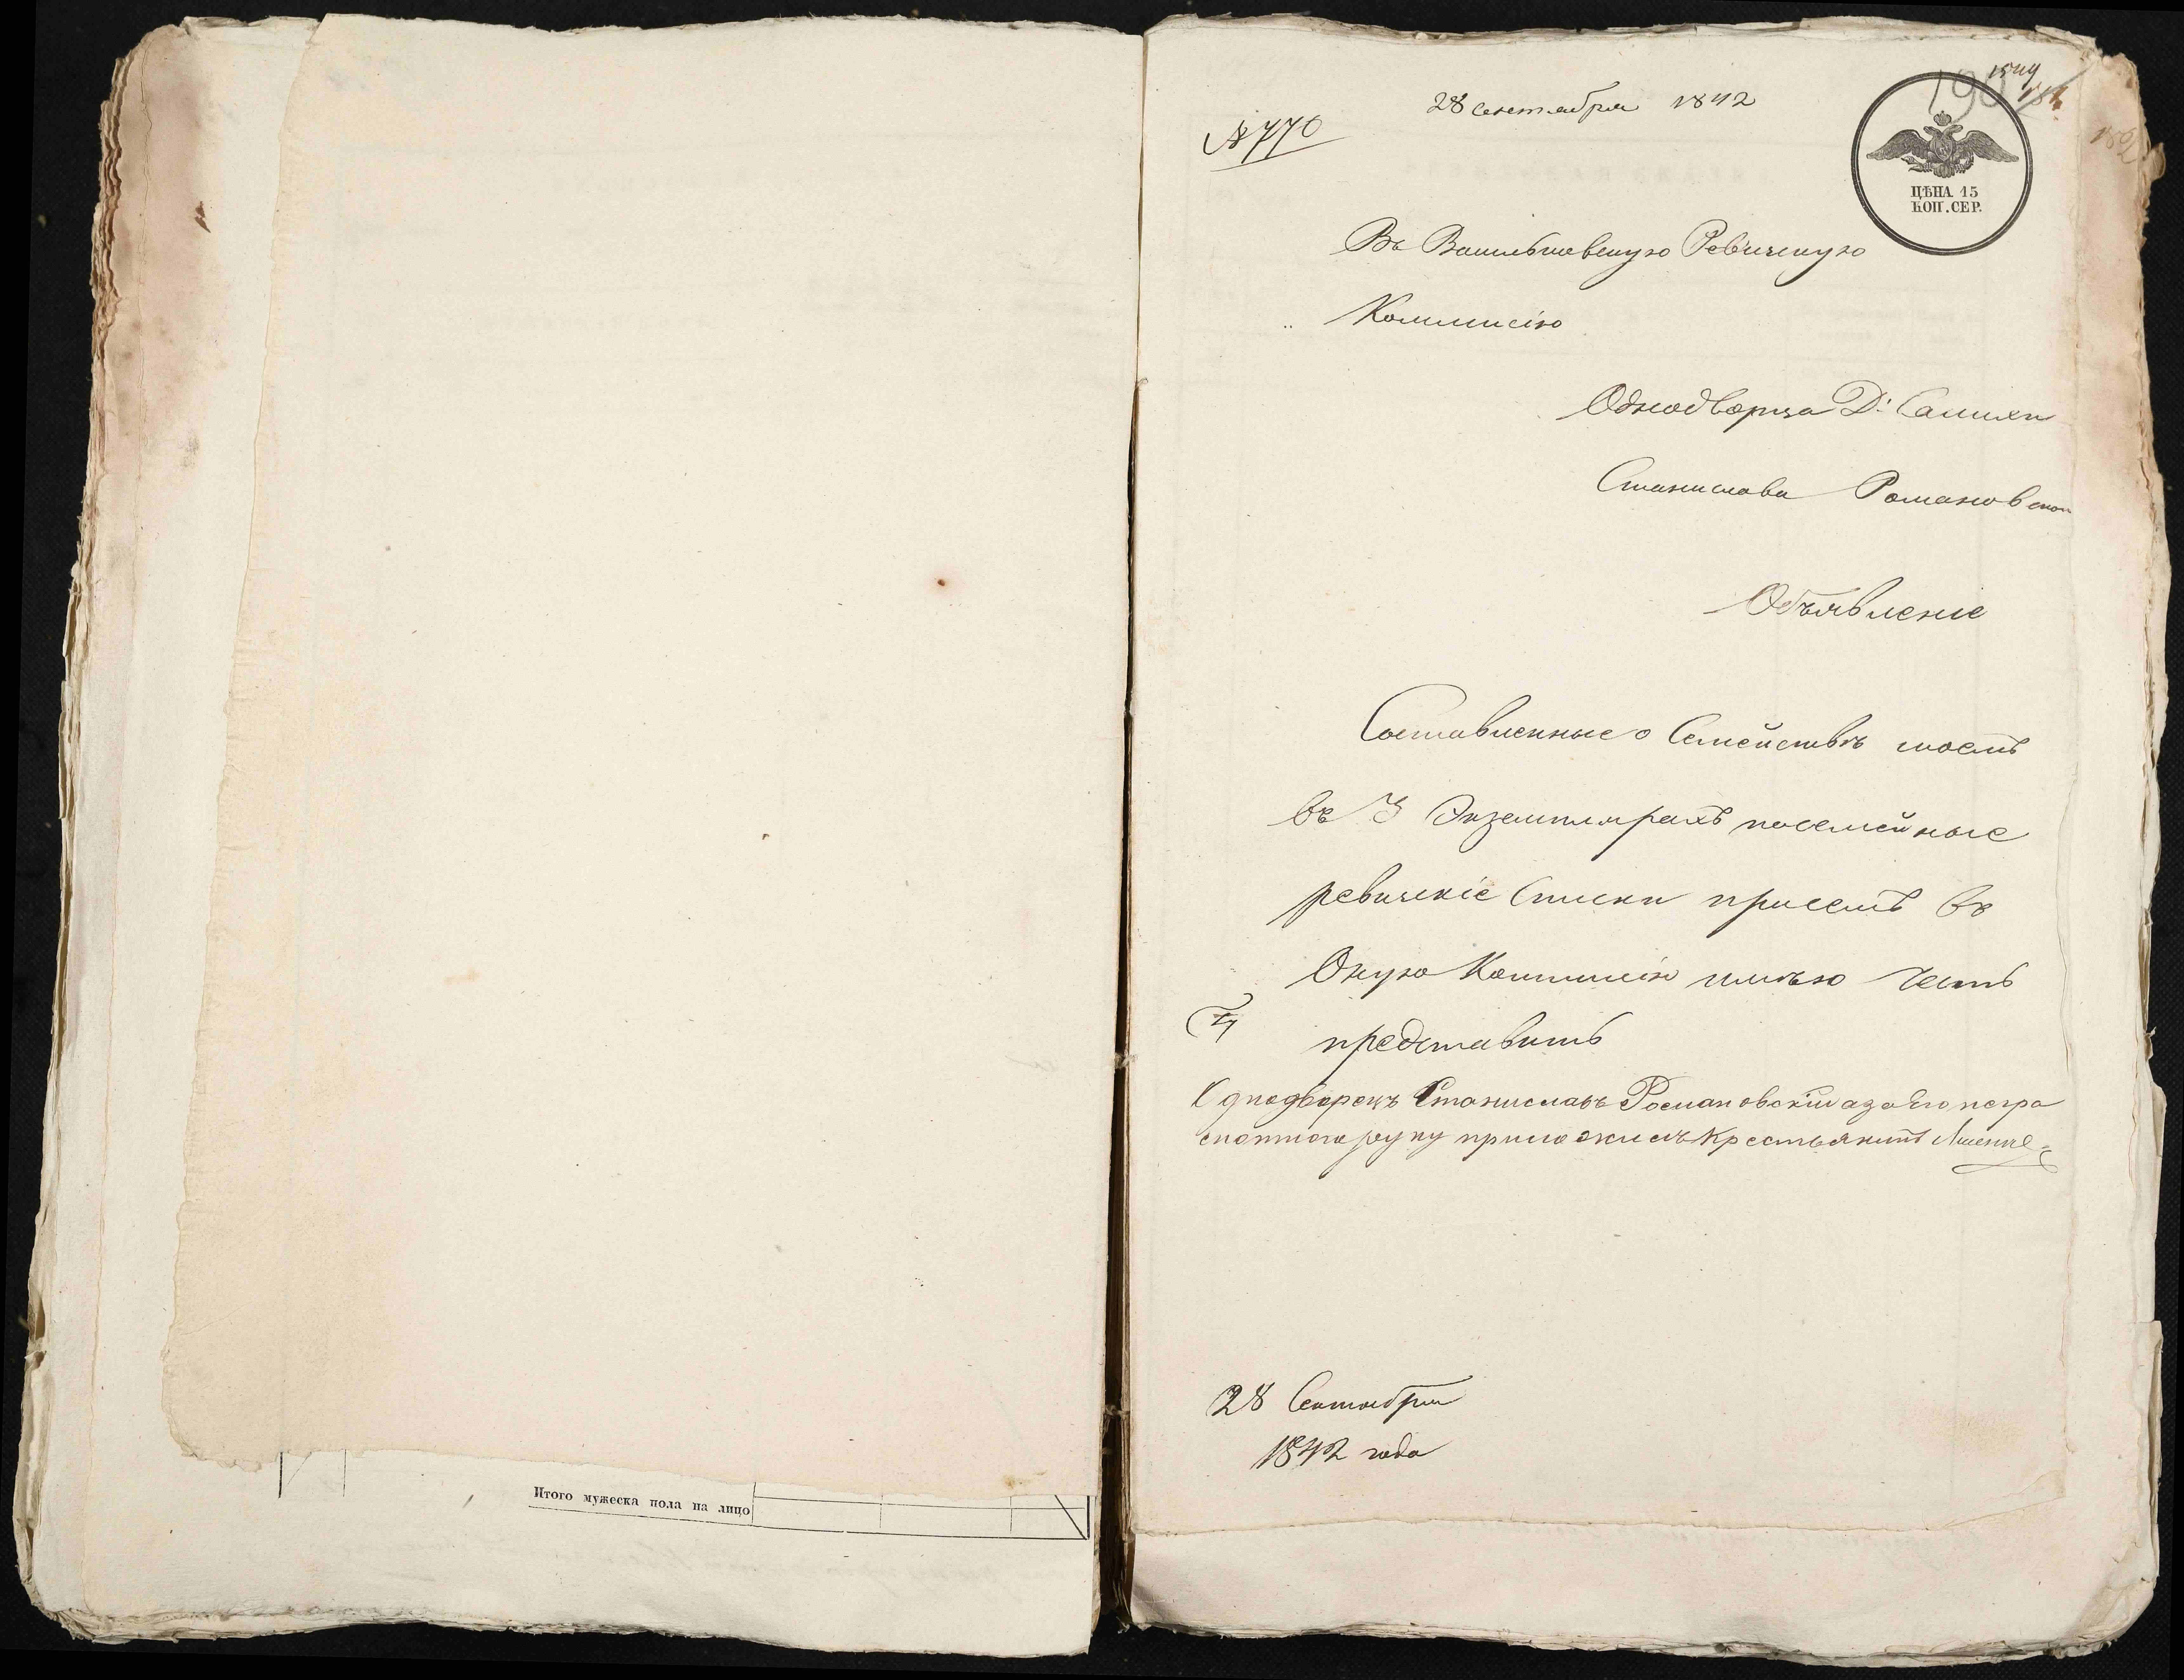 Итого мужеска пола на лицо
28 Сентября 1842
№ 770
190
1549
ЦѢНА 15
КОП. СЕР.
Въ Васильковскую Ревизскую
Коммисію
Однодворца Д:
Станислава Романовского
Объявленіе
Составленные о Семействѣ моемъ
въ 3 Экземплярахъ посемейные
ревизскіе Списки присемъ въ
Оную Коммисію имѣю честь
представить
Однодворецъ Станиславъ Романовскій а за его негра
мотного руку приложилъ Крестьянинъ
28 Сентября
1842 года